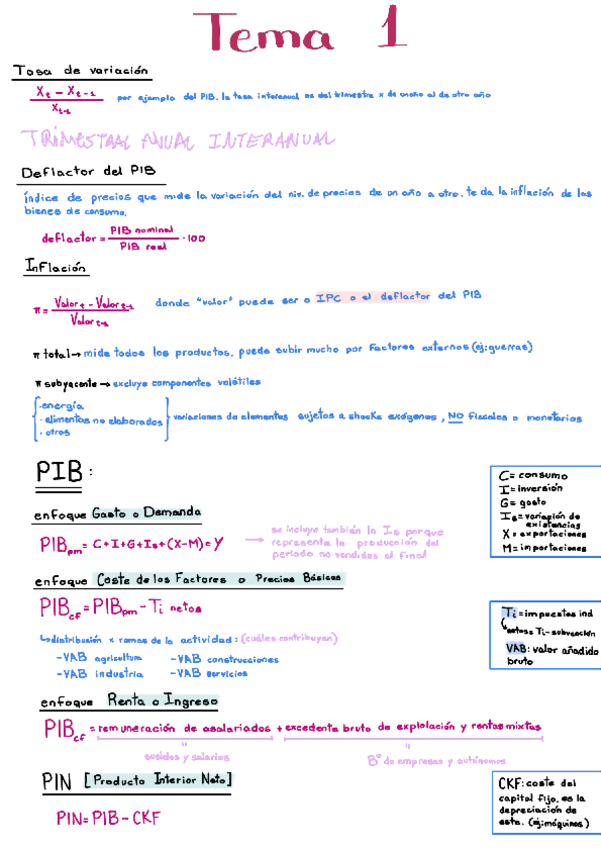 Tema 1
Tasa de variación
Xt - Xt-1
Xt-1
por ejemplo del PIB. la tasa interanual es del trimestre x de un año al de otro año
TRIMESTRAL ANUAL INTERANUAL
Deflactor del PIB
índice de precios que mide la variación del niv. de precios de un año a otro. te da la inflación de los
bienes de consumo.
deflactor = PIB nominal / PIB real · 100
Inflación
π = Valort - Valort-1 / Valort-1
donde "valor" puede ser o IPC o el deflactor del PIB
π total → mide todos los productos. puede subir mucho por factores externos (ej: guerras)
π subyacente → excluye componentes volátiles
- energía
- alimentos no elaborados
- otros
variaciones de elementos sujetos a shocks exógenos, NO fiscales o monetarios
PIB:
C = consumo
I = inversión
G = gasto
Is = variación de
existencias
X = exportaciones
M = importaciones
enfoque Gasto o Demanda
PIBpm = C + I + G + Is + (X-M) = Y
→ se incluye también la Is porque
representa la producción del
periodo no vendidas al final
enfoque Coste de los Factores o Precios Básicos
PIBcf = PIBpm - Ti netos
Ti = impuestos ind
netos = Ti - subvención
VAB: valor añadido
bruto
↳ distribución x ramas de la actividad: (cuáles contribuyen)
- VAB agricultura - VAB construcciones
- VAB industria - VAB servicios
enfoque Renta o Ingreso
PIBcf = remuneración de asalariados + excedente bruto de explotación y rentas mixtas
sueldos y salarios
Bº de empresas y autónomos
PIN [Producto Interior Neto]
PIN = PIB - CKF
CKF: coste del
capital fijo. es la
depreciación de
este. (ej: máquinas)